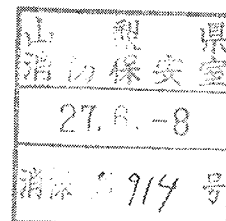 山梨県
消防保安室
27.6.-8
消保 914号